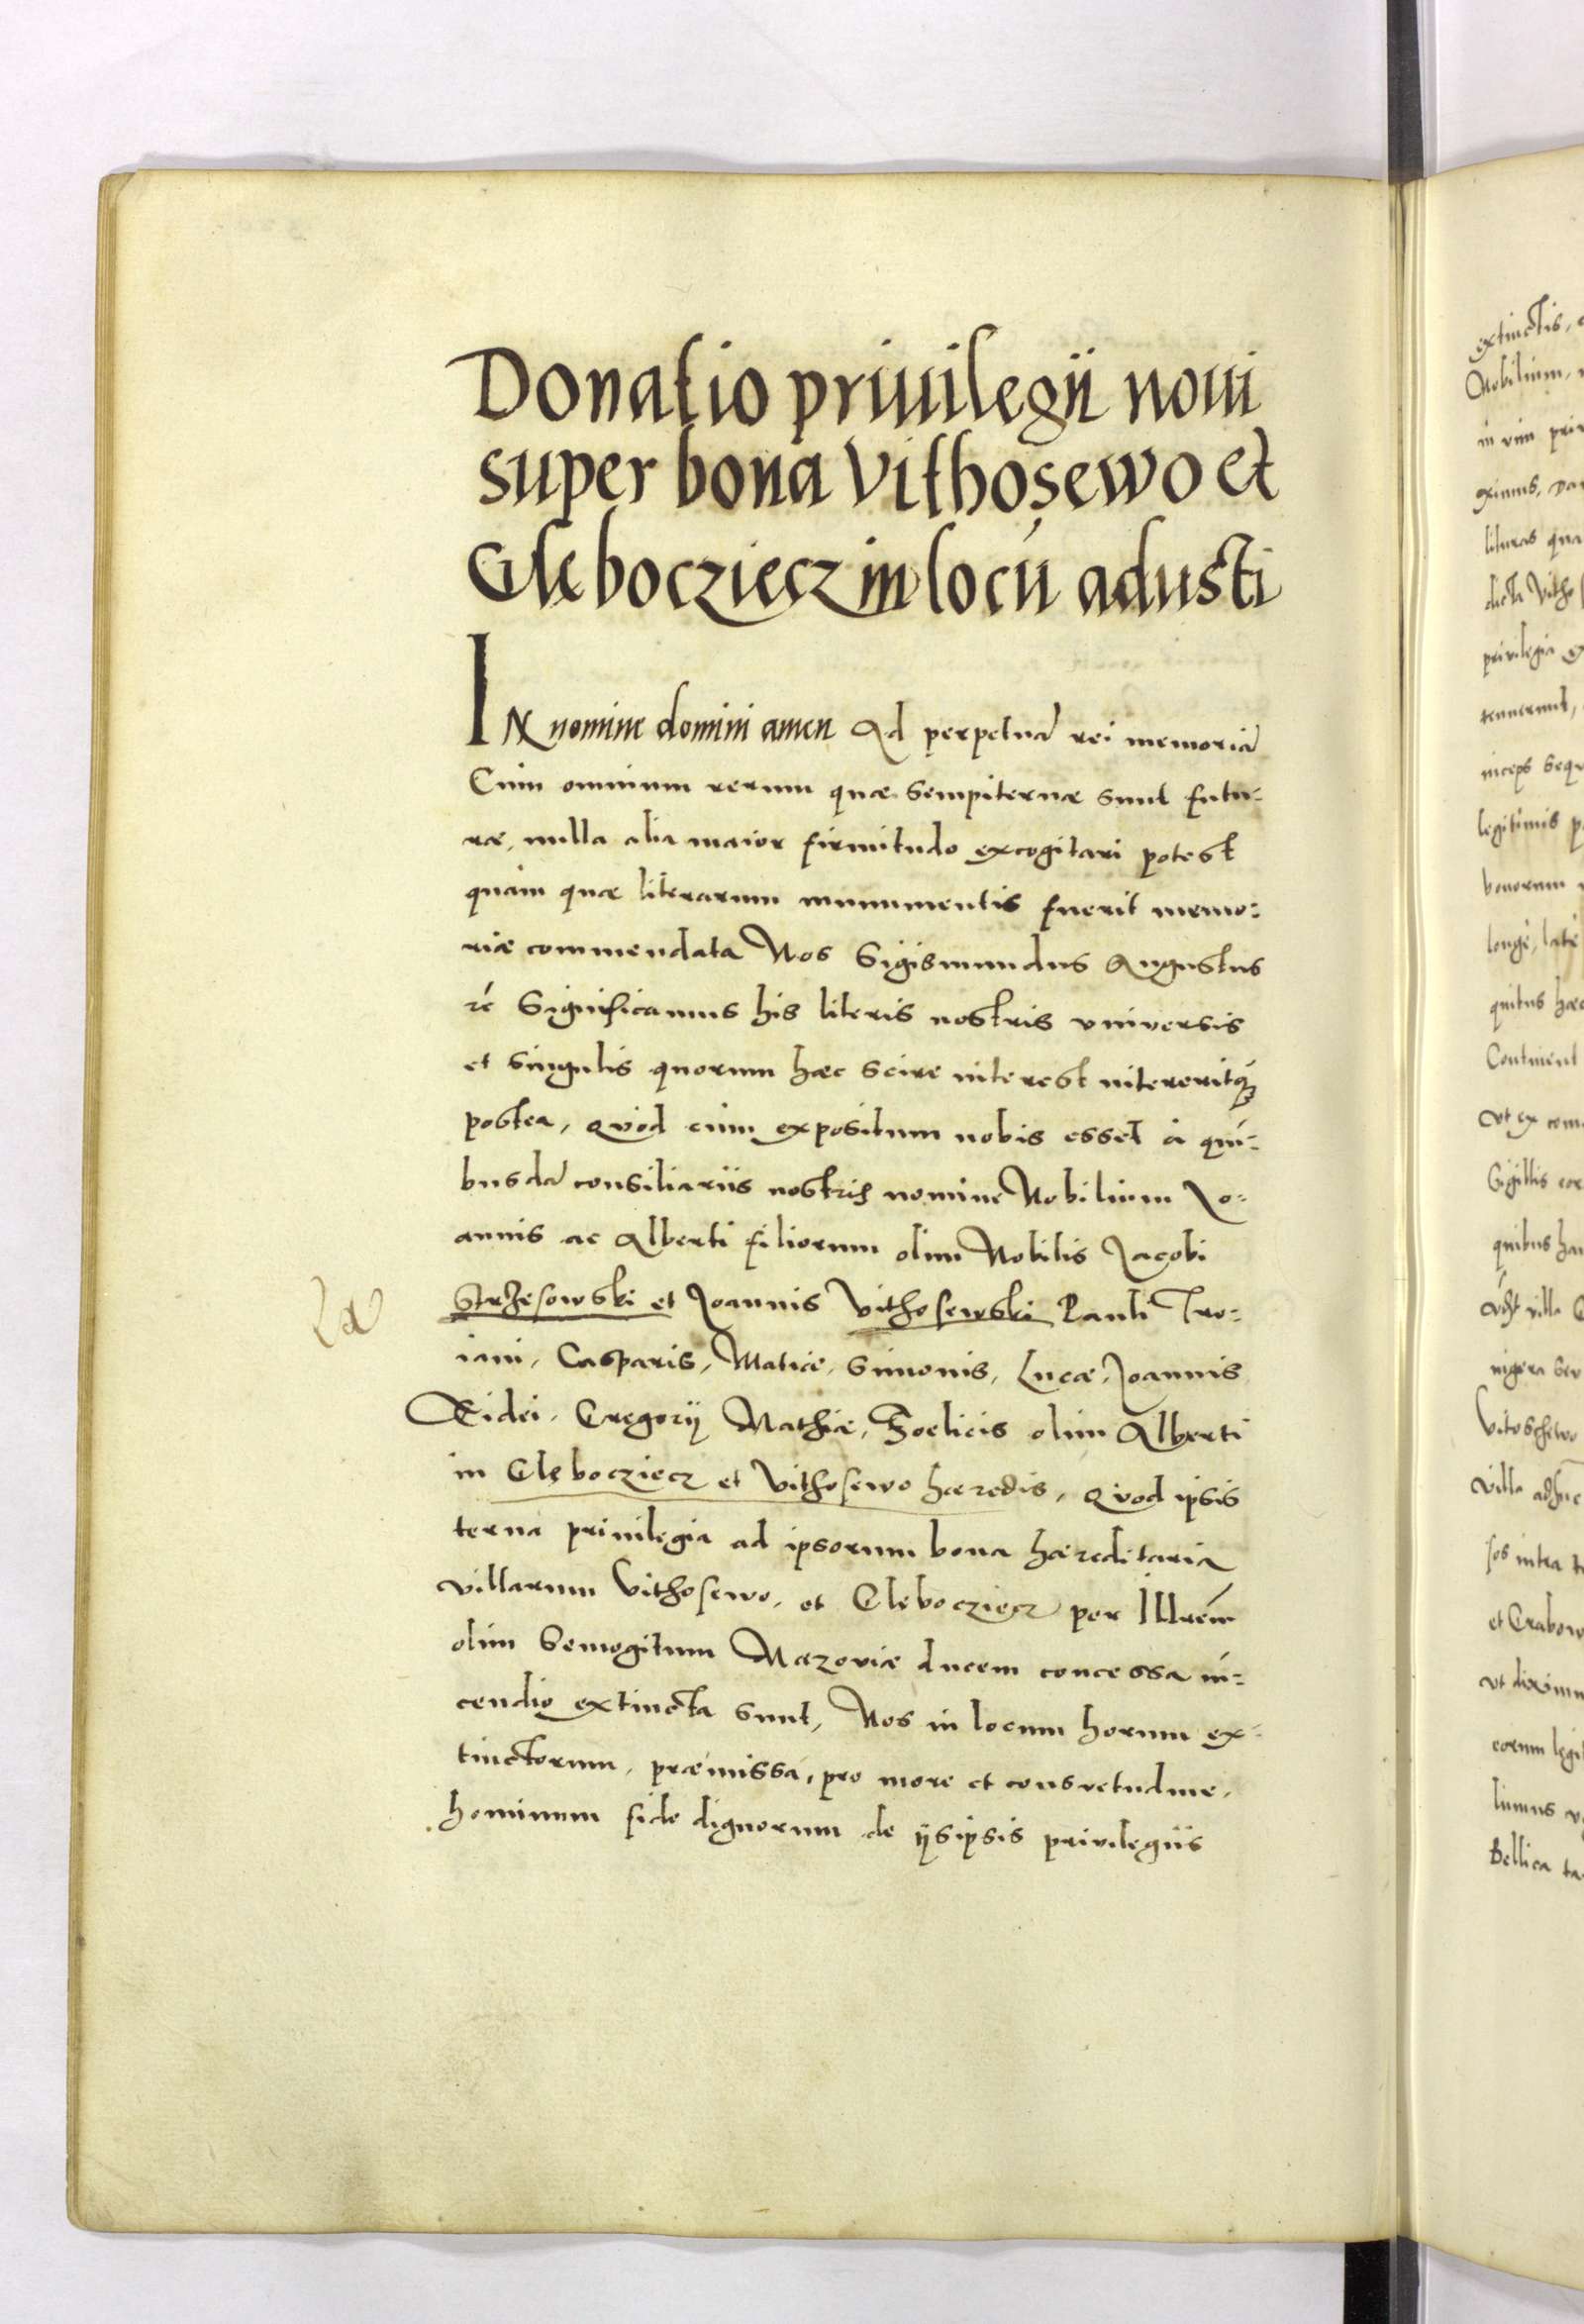 Donatio priuilegii noui
super bona Vithosewo et
Glębocziecz in locū adusti
IN nomine domini amen Ad perpetuā rei memoriā
Cum omnium rerum quæ sempiternæ sunt futu-
ræ, nulla alia maior firmitudo excogitari potest
quàm quæ literarum munumentis fuerit memo-
riæ commendata Nos Sigismundus Augustus
rc̄ Significamus his literis nostris vniversis
et singulis quorum hæc scire interest intereritq́ꝫ
postea, Qvod cùm expositum nobis esset à qui-
busdā consiliariis nostris nomine Nobilium Jo-
annis ac Alberti filiorum olim Nobilis Jacobi
Strzesowski et Joannis Vithosewski Pauli Tro-
iani, Casparis, Matiæ, Simonis, Lucæ, Joannis
Egidei, Gregorij Mathiæ, Foelicis olim Alberti
in Glębocziecz et Vithosewo hæredis, Qvod ipsis
terna priuilegia ad ipsorum bona hæreditaria
villarum Vithosewo, et Glębocziecz per Illrēm
olim Semogitum Mazoviæ ducem concessa in-
cendio extincta sunt, Nos in locum horum ex-
tinctorum, præmissa, pro more et consvetudine,
hominum fide dignorum de ijsipsis privilegiis
extinctis,
Nobilium,
in vim
literas qua
dicta Vitho
privilegia
tenuerunt,
legitimis
bonorum
longè, latè
Continent
Sigillis
villa
Vitoschewo
villa adhuc
et Grabow
vt diximus
eorum
Bellica